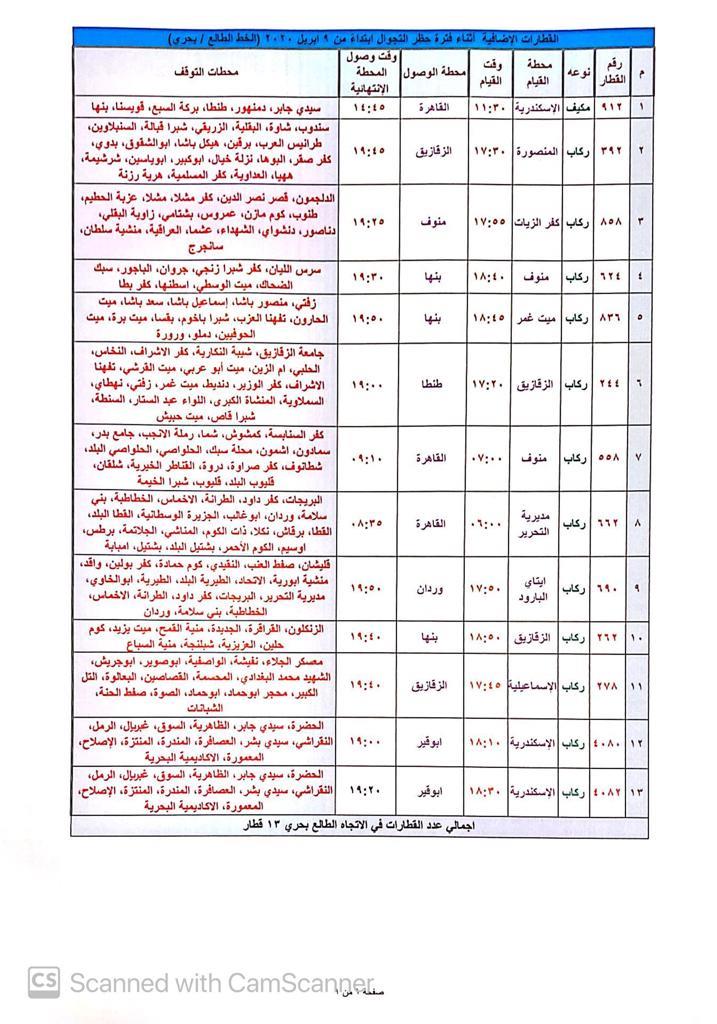 القطارات الإضافية أثناء فترة حظر التجوال ابتداءً من ٩ ابريل ٢٠٢٠ (الخط الطالع / بحري)
م رقم القطار نوعه محطة القيام وقت القيام محطة الوصول وقت وصول المحطة الإنتهائية محطات التوقف
١ ٩١٢ مكيف الإسكندرية ١١:٣٠ القاهرة ١٤:٤٥ سيدي جابر، دمنهور، طنطا، بركة السبع، قويسنا، بنها
٢ ٣٩٢ ركاب المنصورة ١٧:٣٠ الزقازيق ١٩:٤٥ سندوب، شاوة، البقلية، الزريقي، شبرا قبالة، السنبلاوين،
طرانيس العرب، برقين، هيكل باشا، ابوالشقوق، بدوي،
كفر صقر، البوها، نزلة خيال، ابوكبير، ابوياسين، شرشيمة،
ههيا، العداوية، كفر المسلمية، هرية رزنة
٣ ٨٥٨ ركاب كفر الزيات ١٧:٥٥ منوف ١٩:٢٥ الدلجمون، قصر نصر الدين، كفر مشلا، مشلا، عزبة الحطيم،
طنوب، كوم مازن، عمروس، بشتامي، زاوية البقلي،
دناصور، دنشواي، الشهداء، عشما، العراقية، منشية سلطان،
سانجرج
٤ ٦٢٤ ركاب منوف ١٨:٤٠ بنها ١٩:٣٠ سرس الليان، كفر شبرا زنجي، جروان، الباجور، سبك
الضحاك، ميت الوسطي، اسطنها، كفر بطا
٥ ٨٣٦ ركاب ميت غمر ١٨:٤٥ بنها ١٩:٥٠ زفتي، منصور باشا، إسماعيل باشا، سعد باشا، ميت
الحارون، تفهنا العزب، شبرا باخوم، بقسا، ميت برة، ميت
الحوفيين، دملو، ورورة
٦ ٢٤٤ ركاب الزقازيق ١٧:٢٠ طنطا ١٩:٠٠ جامعة الزقازيق، شيبة النكارية، كفر الاشراف، النخاس،
الحلبي، ام الزين، ميت أبو عربي، ميت القرشي، تفهنا
الاشراف، كفر الوزير، دنديط، ميت غمر، زفتي، نهطاي،
السملاوية، المنشاة الكبرى، اللواء عبد الستار، السنطة،
شبرا قاص، ميت حبيش
٧ ٥٥٨ ركاب منوف ٠٧:٠٠ القاهرة ٠٩:١٠ كفر السنابسة، كمشوش، شما، رملة الانجب، جامع بدر،
سمادون، اشمون، محلة سبك، الحلواصي، الحلواصي البلد،
شطانوف، كفر صراوة، دروة، القناطر الخيرية، شلقان،
قليوب البلد، قليوب، شبرا الخيمة
٨ ٦٦٢ ركاب مديرية التحرير ٠٦:٠٠ القاهرة ٠٨:٣٥ البريجات، كفر داود، الطرانة، الاخماس، الخطاطبة، بني
سلامة، وردان، ابوغالب، الجزيرة الوسطانية، القطا البلد،
القطا، برقاش، نكلا، ذات الكوم، المناشي، الجلاتمة، برطس،
اوسيم، الكوم الأحمر، بشتيل البلد، بشتيل، امبابة
٩ ٦٩٠ ركاب ايتاي البارود ١٧:٥٠ وردان ١٩:٥٠ قليشان، صفط العنب، النقيدي، كوم حمادة، كفر بولين، واقد،
منشية ابورية، الاتحاد، الطيرية البلد، الطيرية، ابوالخاوي،
مديرية التحرير، البريجات، كفر داود، الطرانة، الاخماس،
الخطاطبة، بني سلامة، وردان
١٠ ٢٦٢ ركاب الزقازيق ١٨:٥٠ بنها ١٩:٤٠ الزنكلون، القراقرة، الجديدة، منية القمح، ميت يزيد، كوم
حلين، العزيزية، شبلنجة، منية السباع
١١ ٢٧٨ ركاب الإسماعيلية ١٧:٤٥ الزقازيق ١٩:٤٠ معسكر الجلاء، نفيشة، الواصفية، ابوصوير، ابوجريش،
الشهيد محمد البغدادي، المحسمة، القصاصين، البعالوة، التل
الكبير، محجر ابوحماد، ابوحماد، الصوة، صفط الحنة،
الشبانات
١٢ ٤٠٨٠ ركاب الإسكندرية ١٨:١٠ ابوقير ١٩:٠٠ الحضرة، سيدي جابر، الظاهرية، السوق، غبريال، الرمل،
النقراشي، سيدي بشر، العصافرة، المندرة، المنتزة، الإصلاح،
المعمورة، الاكاديمية البحرية
١٣ ٤٠٨٢ ركاب الإسكندرية ١٨:٣٠ ابوقير ١٩:٢٠ الحضرة، سيدي جابر، الظاهرية، السوق، غبريال، الرمل،
النقراشي، سيدي بشر، العصافرة، المندرة، المنتزة، الإصلاح،
المعمورة، الاكاديمية البحرية
اجمالي عدد القطارات في الاتجاه الطالع بحري ١٣ قطار
CS Scanned with CamScanner
صفحة ١ من ١